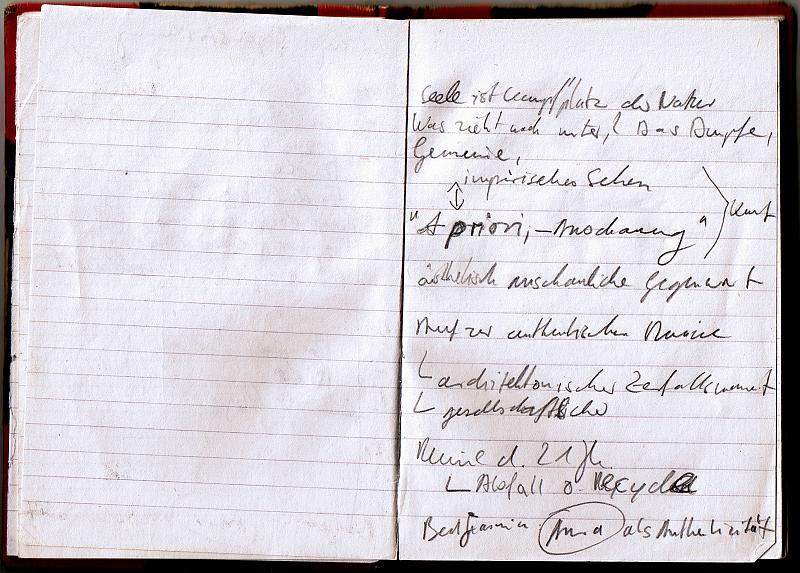 Seele ist Kampfplatz der Natur
Was zieht nach unten, Das Dumpfe,
Gemeine,
impirisches Sehen
"A priori,-Anschauung"
Kant
ästhetisch anschauliche Gegenwart
authentischen Ruine
architektonischer Zerfalls
gesellschaftlicher
Ruine d. 21 Jh.
Abfall o. Recycle
Bedjamin Aura als Authetizität